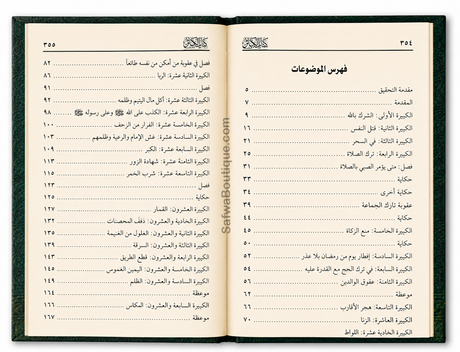 ٣٥٤
كتاب الكبائر
فهرس الموضوعات
مقدمة التحقيق ٥
المقدمة ٧
الكبيرة الأولى: الشرك بالله ٩
الكبيرة الثانية: قتل النفس ١٦
الكبيرة الثالثة: في السحر ٢١
الكبيرة الرابعة: ترك الصلاة ٢٥
فصل: متى يؤمر الصبي بالصلاة ٣١
حكاية ٣٣
حكاية أخرى ٣٤
عقوبة تارك الجماعة ٣٩
الكبيرة الخامسة: منع الزكاة ٤٥
حكاية ٥٠
الكبيرة السادسة: إفطار يوم من رمضان بلا عذر ٥٢
الكبيرة السابعة: في ترك الحج مع القدرة عليه ٥٤
الكبيرة الثامنة: عقوق الوالدين ٥٦
موعظة ٦٢
الكبيرة التاسعة: هجر الأقارب ٦٦
الكبيرة العاشرة: الزنا ٧٠
الكبيرة الحادية عشرة: اللواط
كتاب الكبائر
٣٥٥
فصل في عقوبة من أمكن من نفسه طائعاً ٨٢
الكبيرة الثانية عشرة: الربا ٨٦
فصل ٩١
الكبيرة الثالثة عشرة: أكل مال اليتيم وظلمه ٩٢
الكبيرة الرابعة عشرة: الكذب على الله ﷻ وعلى رسوله ﷺ ٩٨
الكبيرة الخامسة عشرة: الفرار من الزحف ١٠٠
الكبيرة السادسة عشرة: غش الإمام والرعية وظلمهم ١٠٣
الكبيرة السابعة عشرة: الكبر ١٠٩
الكبيرة الثامنة عشرة: شهادة الزور ١١٣
الكبيرة التاسعة عشرة: شرب الخمر ١١٥
فصل ١٢٣
حكاية ١٢٥
الكبيرة العشرون: القمار ١٢٧
الكبيرة الحادية والعشرون: قذف المحصنات ١٣٢
الكبيرة الثانية والعشرون: الغلول من الغنيمة ١٣٥
الكبيرة الثالثة والعشرون: السرقة ١٣٩
الكبيرة الرابعة والعشرون: قطع الطريق ١٤٣
الكبيرة الخامسة والعشرون: اليمين الغموس ١٤٥
الكبيرة السادسة والعشرون: الظلم ١٤٩
موعظة ١٦٤
الكبيرة السابعة والعشرون: المكاس ١٦٦
موعظة ١٦٧
SafwaBoutique.com